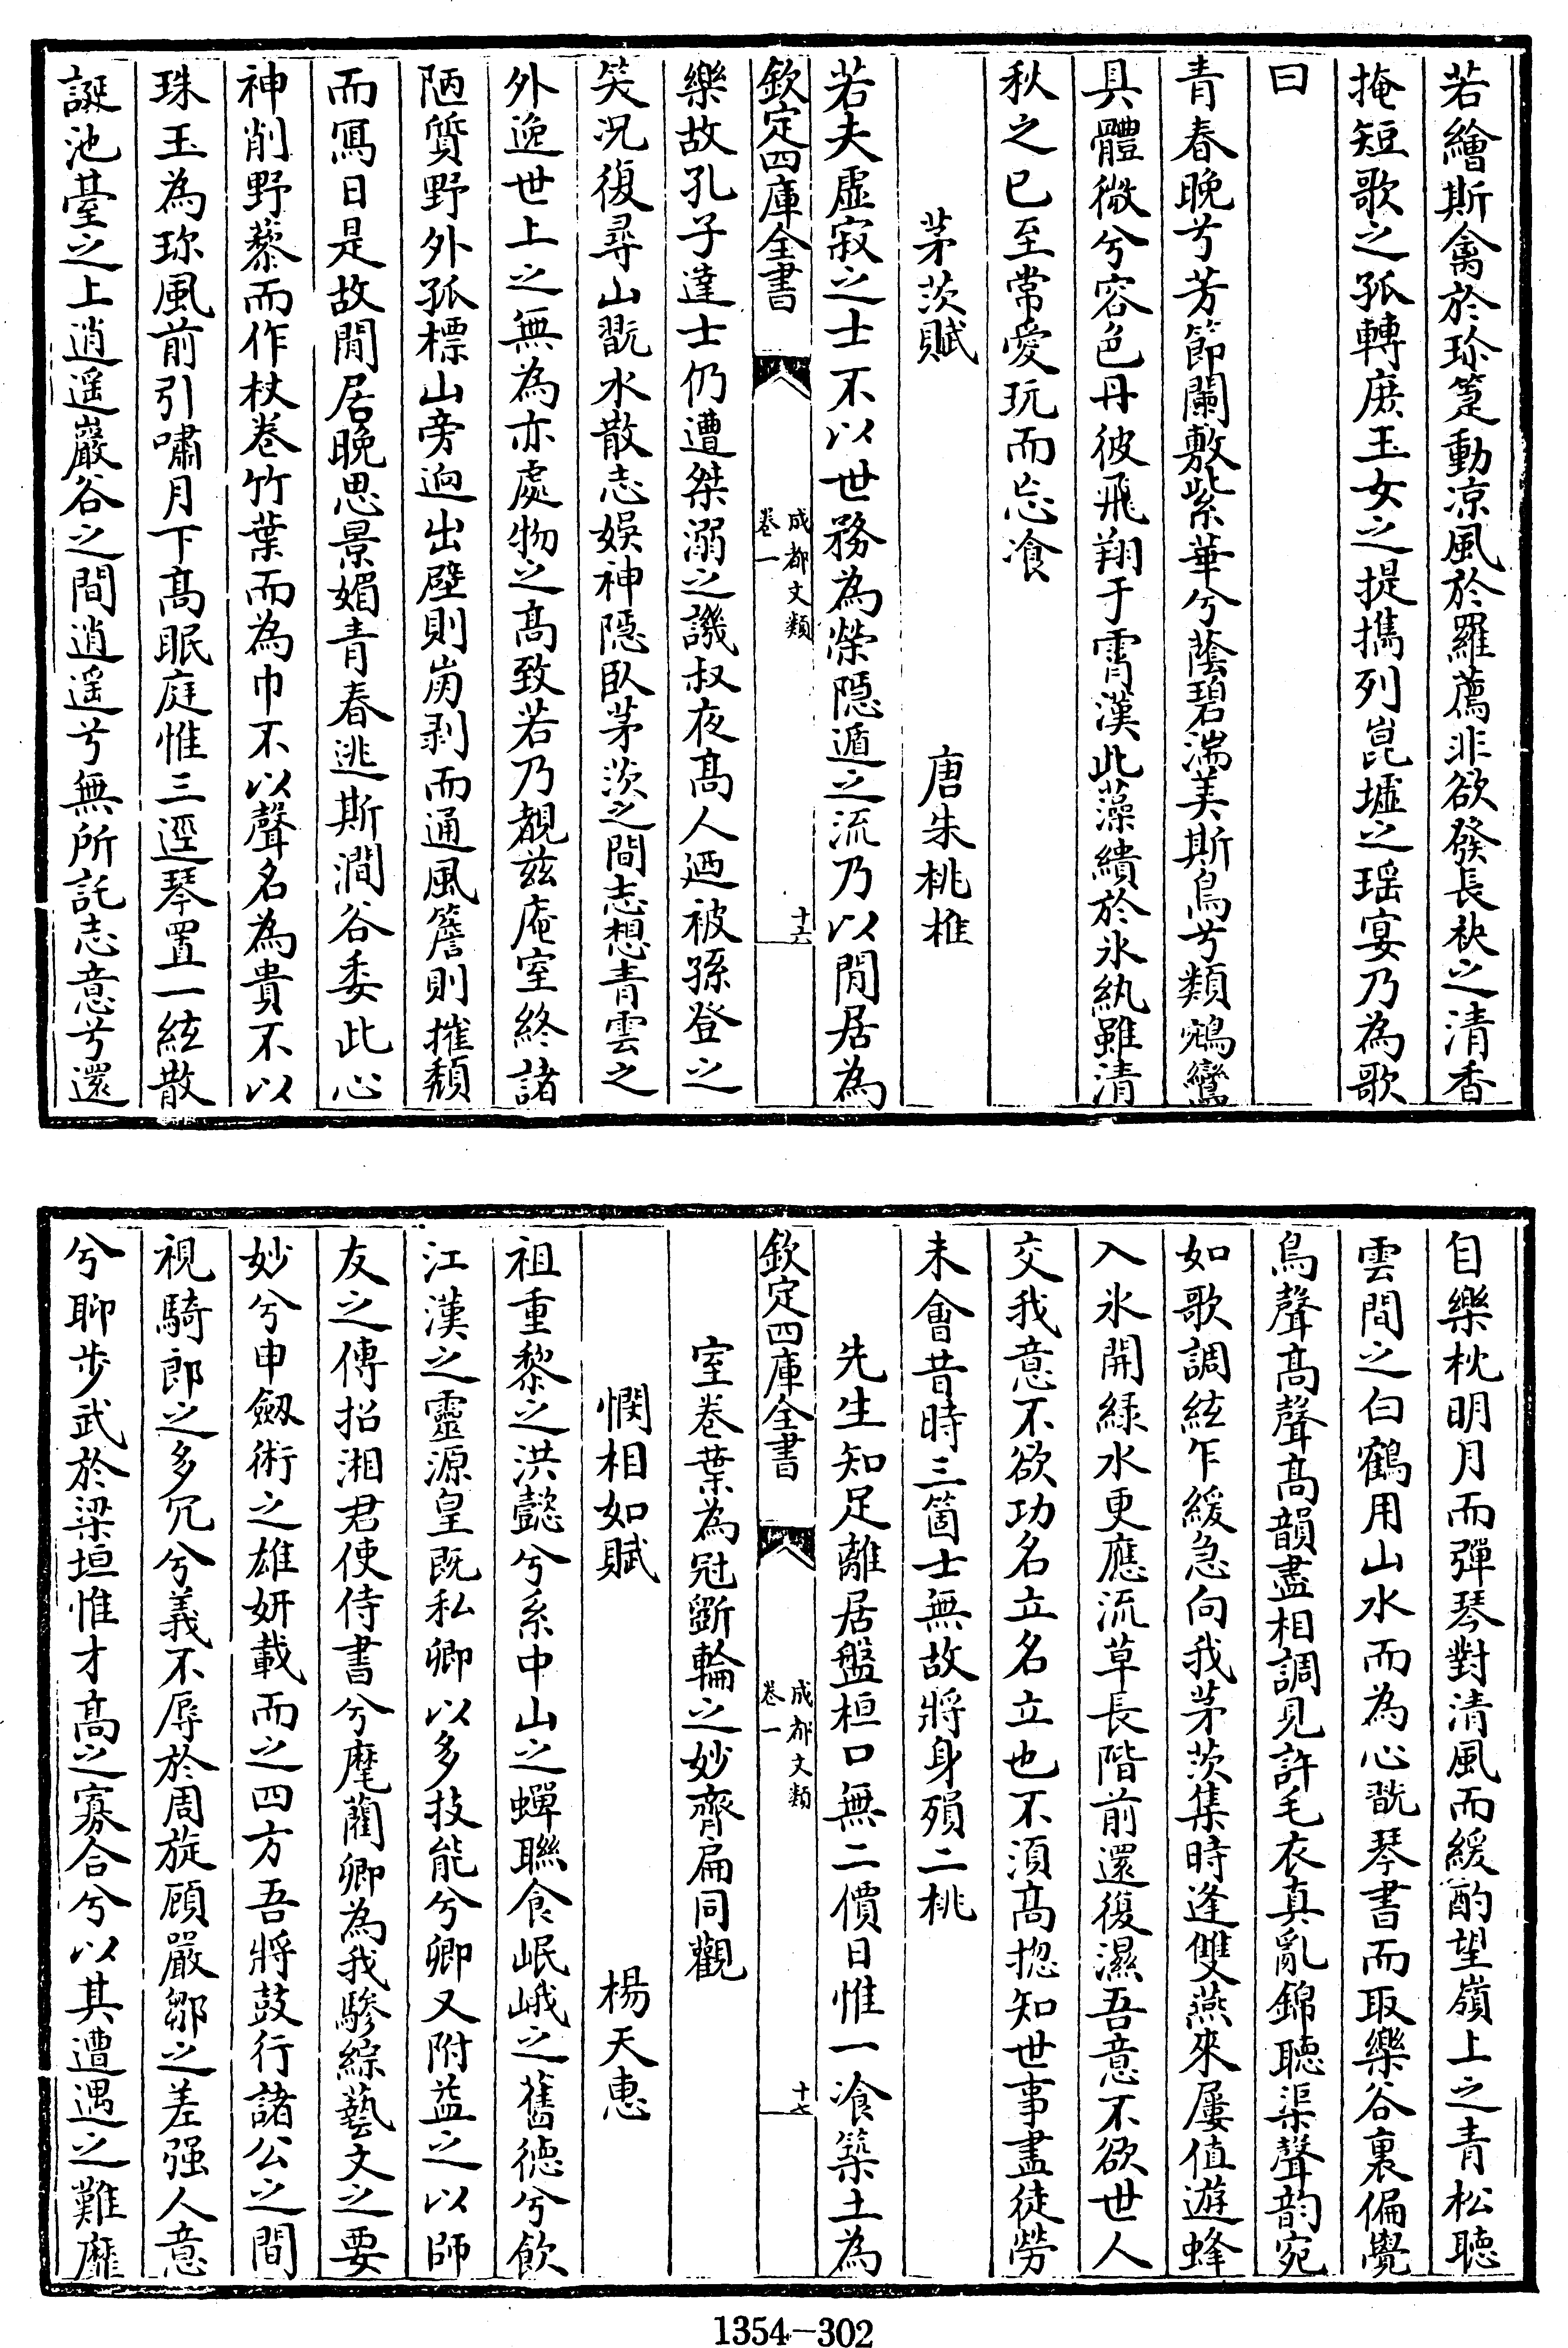 若繪斯禽於珍箑動凉風於羅薦非欲發長袂之清香
掩短歌之孤轉庻玉女之提攜列崑墟之瑶宴乃為歌
曰
青春晚兮芳節闌敷紫華兮蔭碧湍美斯鳥兮類鵷鸞
具體微兮容色丹彼飛翔于霄漢此藻繢於氷紈雖清
秋之已至常愛玩而忘飡
茅茨賦　唐朱桃椎
若夫虚寂之士不以世務為榮隱遁之流乃以閒居為
欽定四庫全書　成都文類卷一　十六
樂故孔子達士仍遭桀溺之譏叔夜髙人迺被孫登之
笑况復尋山翫水散志娱神隱臥茅茨之間志想青雲之
外逸世上之無為亦處物之髙致若乃覩兹庵室終諸
陋質野外孤標山旁逈出壁則崩剥而通風簷則摧頽
而冩日是故閒居晚思景媚青春逃斯澗谷委此心
神削野藜而作杖卷竹葉而為巾不以聲名為貴不以
珠玉為珍風前引嘯月下髙眠庭惟三逕琴置一絃散
誕池臺之上逍遥巖谷之間逍遥兮無所託志意兮還
自樂枕明月而彈琴對清風而緩酌望嶺上之青松聽
雲間之白鶴用山水而為心翫琴書而取樂谷裏偏覺
鳥聲髙聲髙韻盡相調見許毛衣真亂錦聽渠聲韵宛
如歌調絃乍緩急向我茅茨集時逢雙燕來屢值遊蜂
入氷開緑水更應流草長階前還復濕吾意不欲世人
交我意不欲功名立名立也不須髙揔知世事盡徒勞
未會昔時三箇士無故將身殞二桃
先生知足離居盤桓口無二價日惟一飡築土為
欽定四庫全書　成都文類卷一　十七
室卷葉為冠斵輪之妙齊扁同觀
憫相如賦　楊天惠
祖重黎之洪懿兮系中山之蟬聯食岷峨之舊徳兮飲
江漢之靈源皇既私卿以多技能兮卿又附益之以師
友之傳招湘君使侍書兮麾藺卿為我驂綜藝文之要
妙兮申劔術之雄妍載而之四方吾將鼓行諸公之間
視騎郎之多冗兮義不辱於周旋顧嚴鄒之差强人意
兮聊步武於梁垣惟才髙之寡合兮以其遭遇之難靡
1354-302